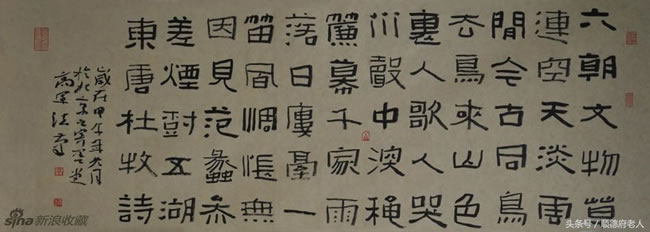 六朝文物草
連空天淡雲
閒今古同鳥
去鳥來山色
裏人歌人哭
水聲中深穐
簾幕千家雨
落日樓臺一
笛風惆悵無
因見范蠡參
差煙樹五湖
東唐杜牧詩
歲在甲午年六月
於北京
sina 新浪收藏
头条号 / 顺德府老人